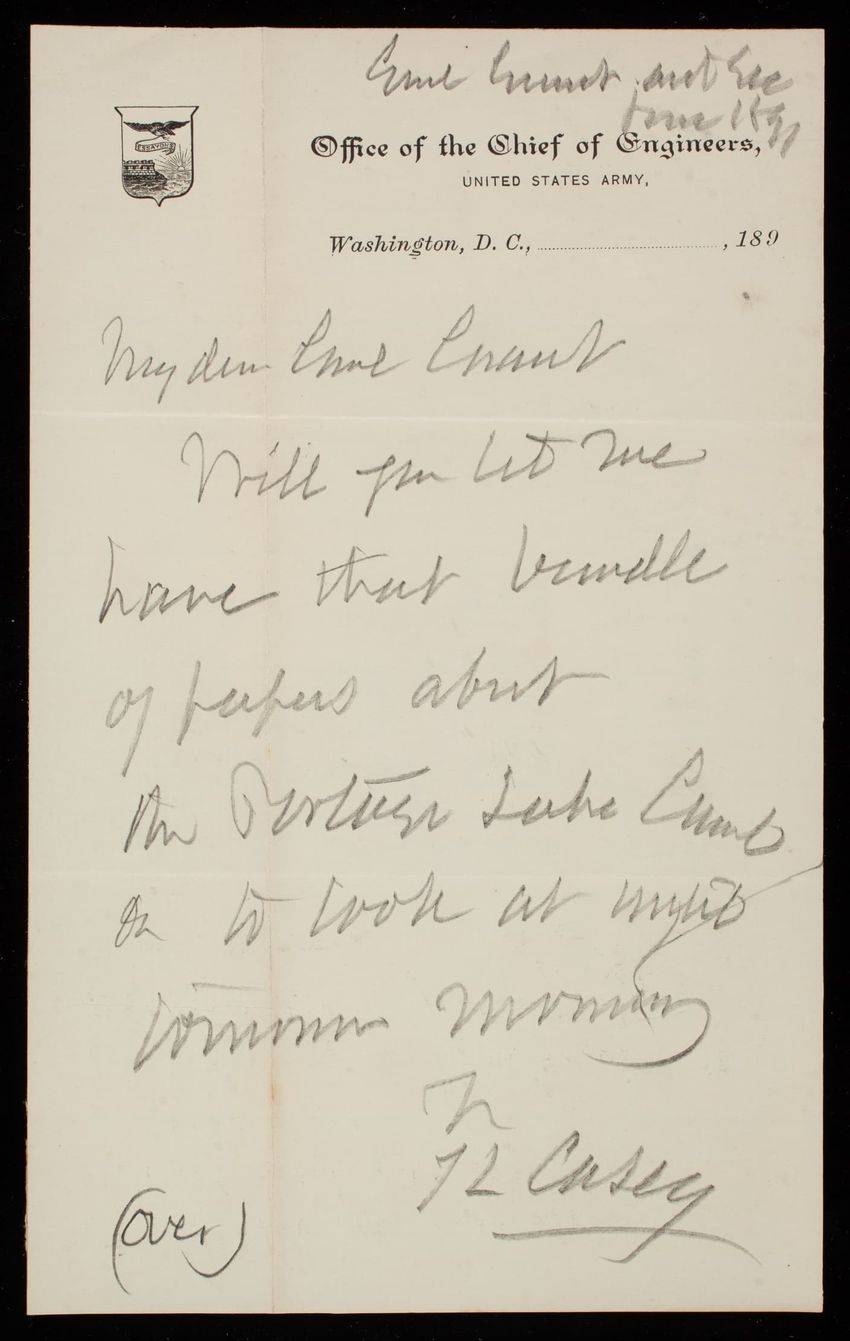 Genl Grant, Asst Sec
June 1891
ESSAYONS
Office of the Chief of Engineers,
UNITED STATES ARMY,
Washington, D. C., , 189
My dear Genl Grant
Will you let me
have that bundle
of papers about
the Portage Lake Canal
to look at
tomorrow morning
TL Casey
(over)